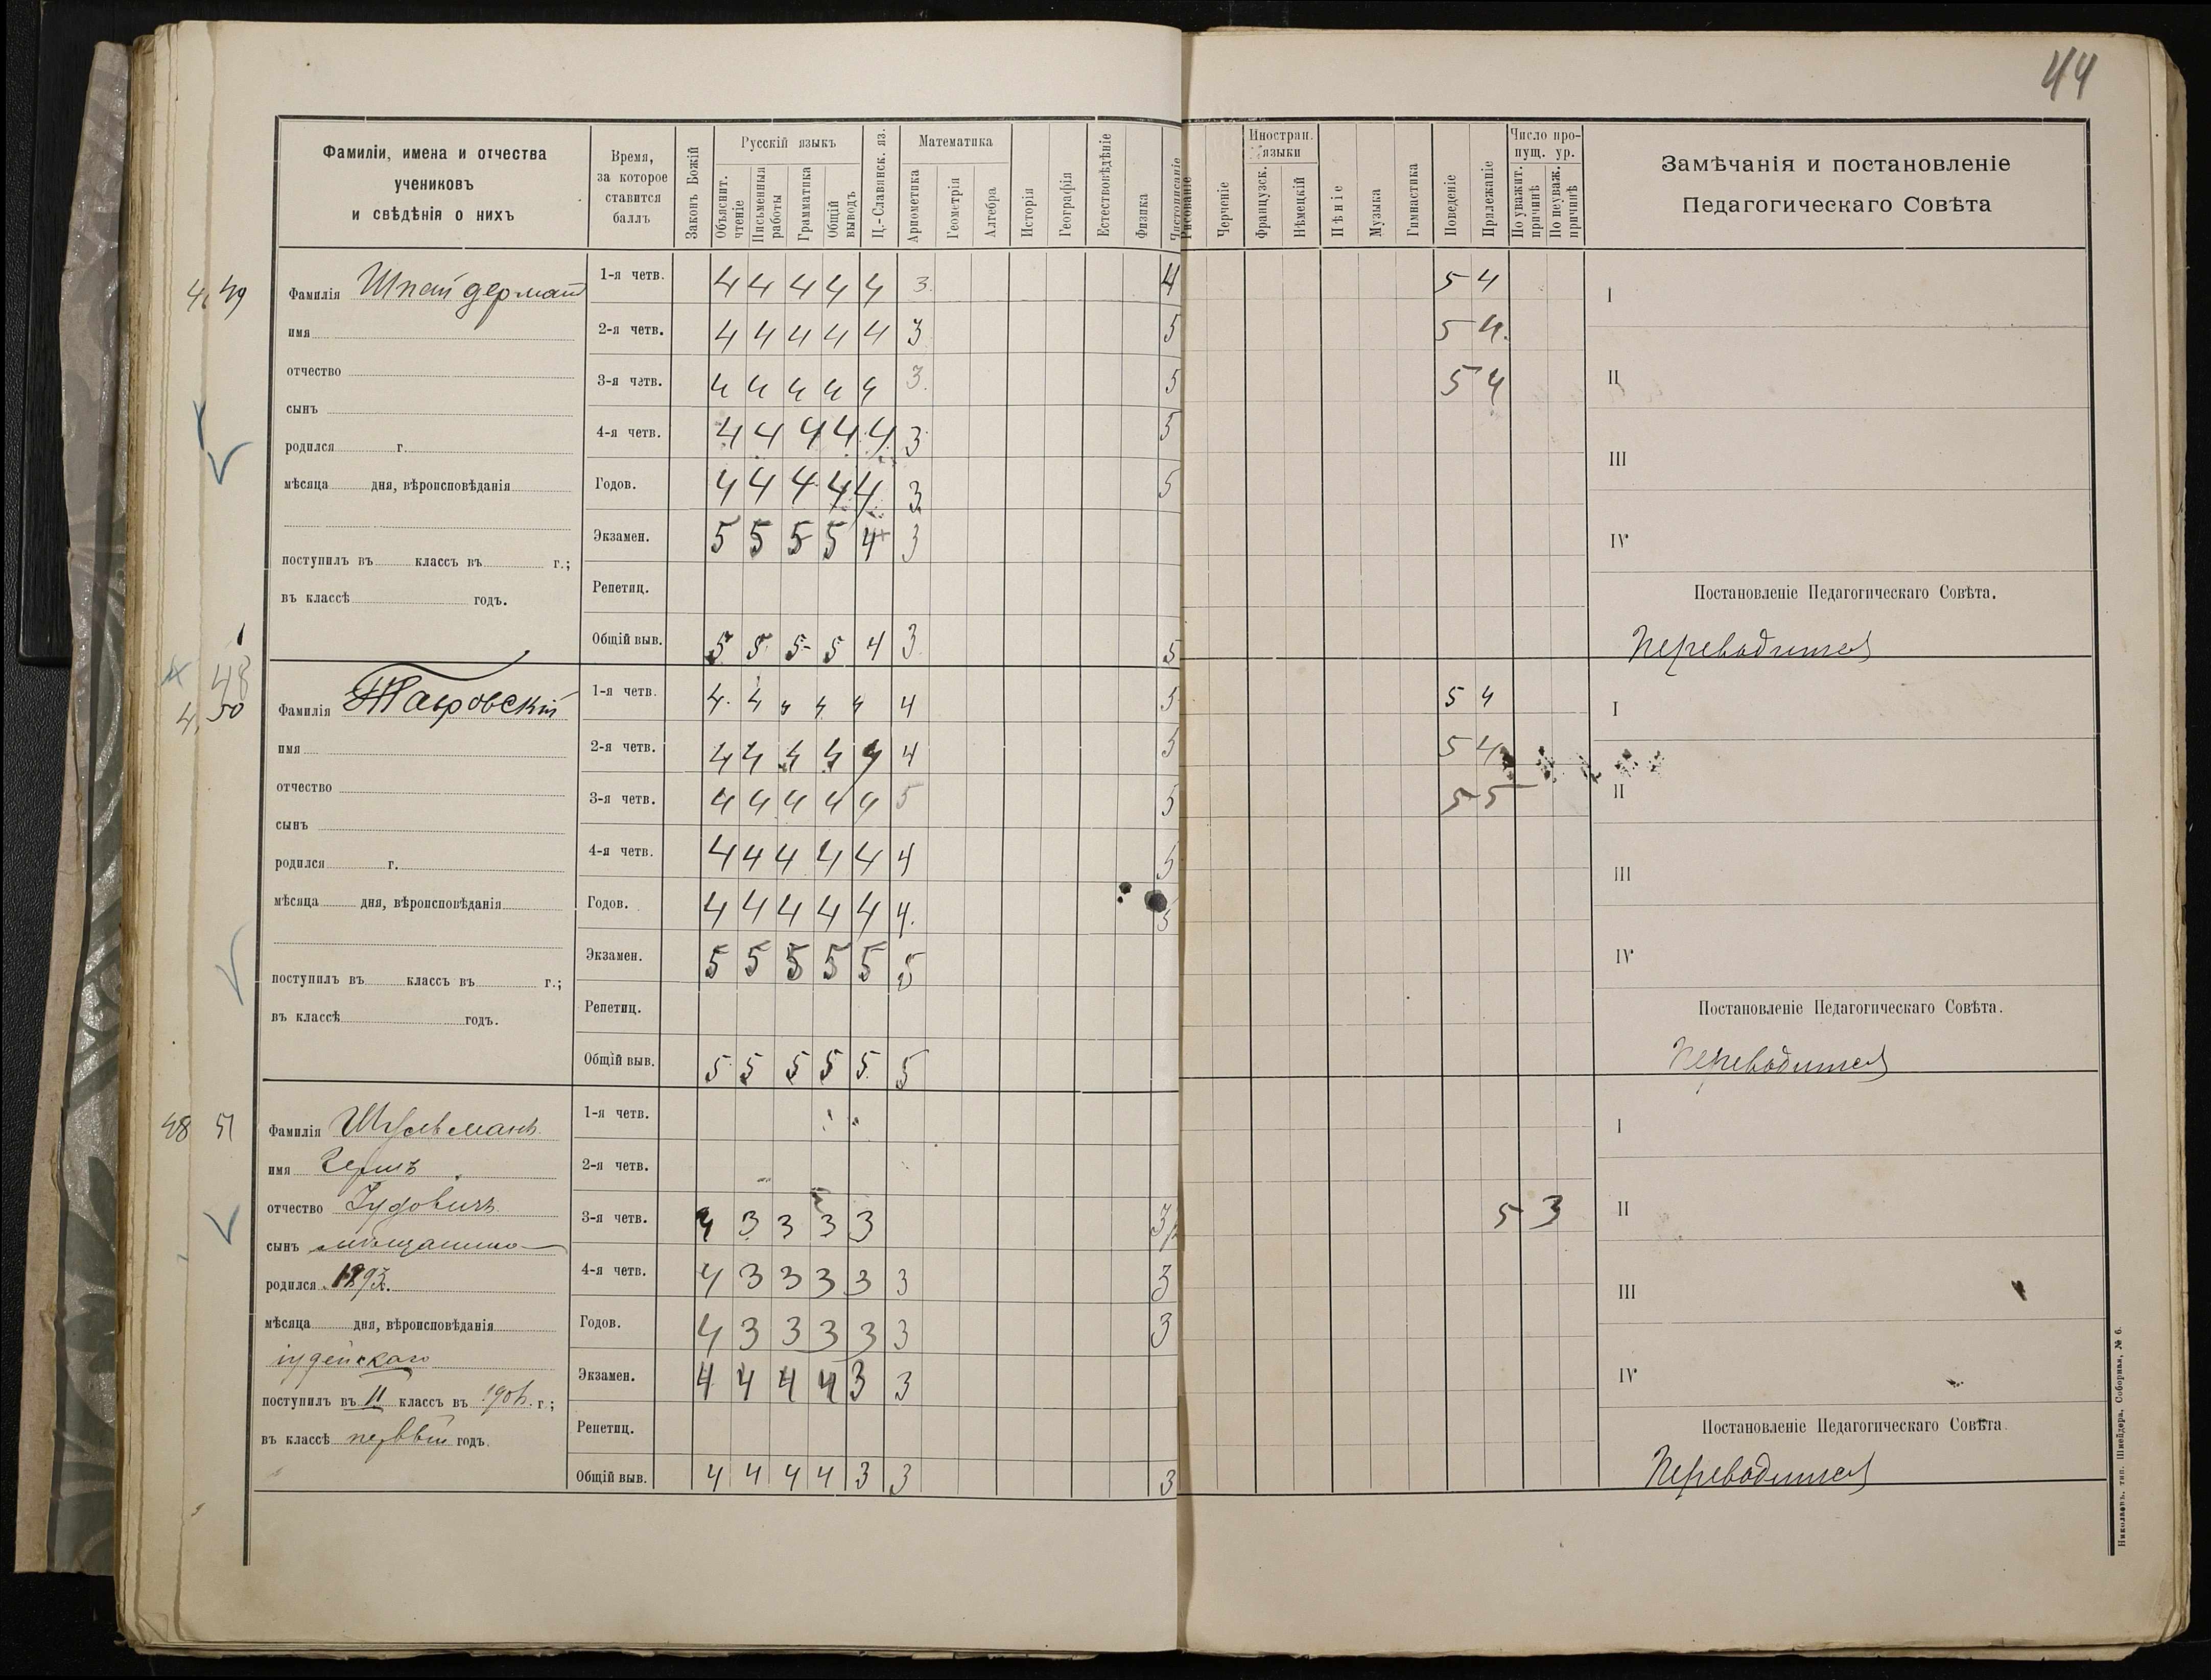 44
Фамиліи, имена и отчества
учениковъ
и свѣдѣнія о нихъ
Время,
за которое
ставится
баллъ
Законъ Божій
Русскій языкъ
Объяснит.
чтеніе
Письменныя
работы
Грамматика
Общій
выводъ
Ц.-Славянск. яз.
Математика
Ариѳметика
Геометрія
Алгебра
Исторія
Географія
Естествовѣдѣніе
Физика
Чистописаніе
Рисованіе
Черченіе
Иностран.
языки
Французск.
Нѣмецкій
Пѣніе
Музыка
Гимнастика
Поведеніе
Прилежаніе
Число про-
пущ. ур.
По уважит.
причинѣ
По неуваж.
причинѣ
Замѣчанія и постановленіе
Педагогическаго Совѣта
49
Фамилія
имя
отчество
сынъ
родился г.
мѣсяца дня, вѣроисповѣданія
поступилъ въ классъ въ г.;
въ классѣ годъ.
1-я четв. 4 4 4 4 4 3 4 5 4
2-я четв. 4 4 4 4 4 3 5 5 4
3-я четв. 4 4 4 4 4 3 5 5 4
4-я четв. 4 4 4 4 4 3 5
Годов. 4 4 4 4 4 3 5
Экзамен. 5 5 5 5 4 3
Репетиц.
Общій выв. 5 5 5 5 4 3 5
I
II
III
IV
Постановленіе Педагогическаго Совѣта.
Переводится
48
50
Фамилія
имя
отчество
сынъ
родился г.
мѣсяца дня, вѣроисповѣданія
поступилъ въ классъ въ г.;
въ классѣ годъ.
1-я четв. 4 4 4 4 4 4 5 5 4
2-я четв. 4 4 4 4 4 4 5 5 4
3-я четв. 4 4 4 4 4 5 5 5 5
4-я четв. 4 4 4 4 4 4 5
Годов. 4 4 4 4 4 4 5
Экзамен. 5 5 5 5 5 5
Репетиц.
Общій выв. 5 5 5 5 5 5
I
II
III
IV
Постановленіе Педагогическаго Совѣта.
Переводится
48 51
Фамилія
имя Гершъ
отчество Іудовичъ
сынъ мѣщанина
родился 1893.
мѣсяца дня, вѣроисповѣданія
іудейскаго
поступилъ въ II классъ въ г.;
въ классѣ первый годъ.
1-я четв.
2-я четв.
3-я четв. 4 3 3 3 3 3 5 3
4-я четв. 4 3 3 3 3 3 3
Годов. 4 3 3 3 3 3 3
Экзамен. 4 4 4 4 3 3
Репетиц.
Общій выв. 4 4 4 4 3 3 3
I
II
III
IV
Постановленіе Педагогическаго Совѣта.
Переводится
Николаевъ. тип. Шнейдера, Соборная, № 6.